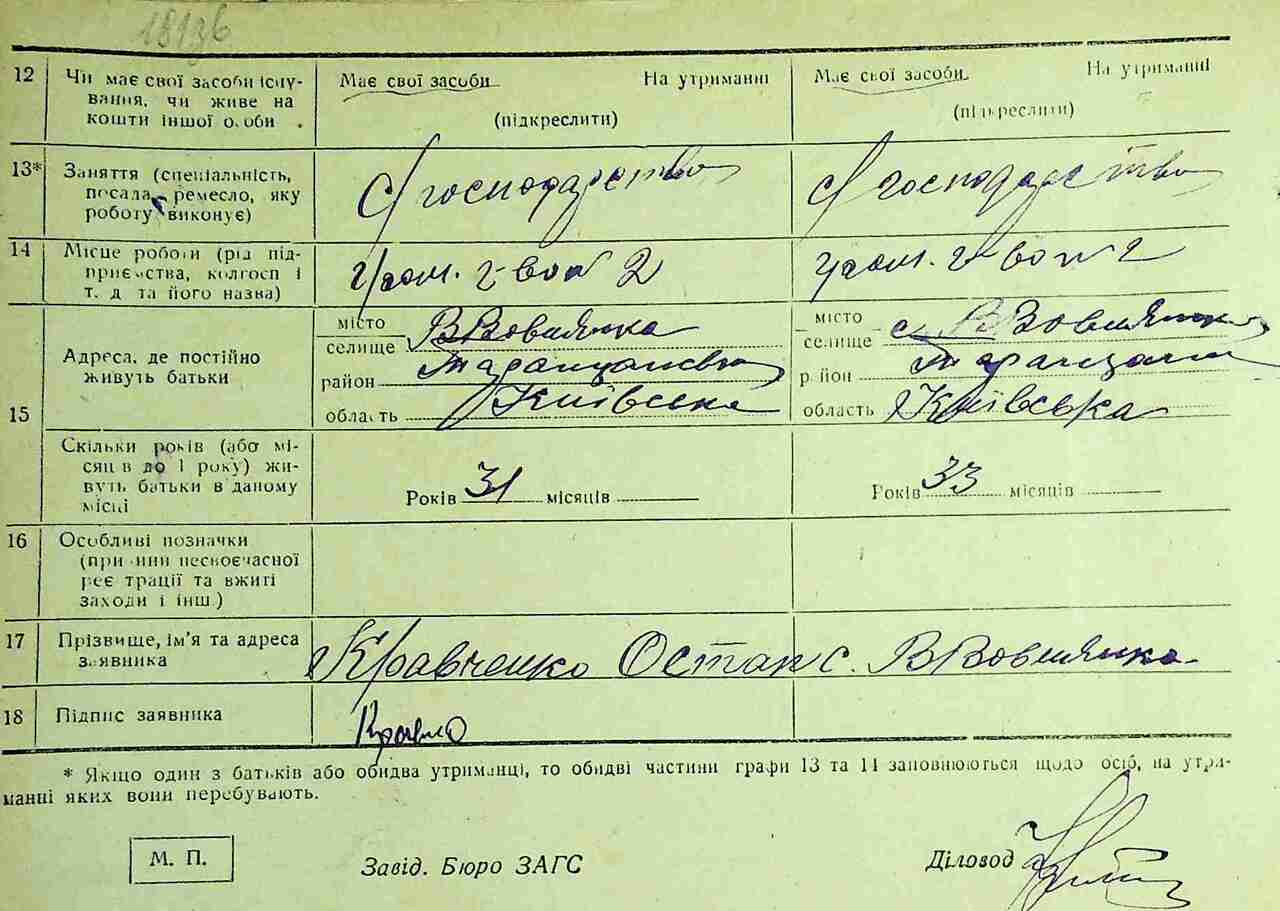 18136
12 Чи має свої засоби існу- Має свої засоби На утриманні Має свої засоби На утриманні
вання, чи живе на
кошти іншої особи (підкреслити) (підкреслити)
13* Заняття (спеціальність, С/господарство С/господарство
посада, ремесло, яку
роботу виконує)
14 Місце роботи (рід під- Гром. г-во № 2 Гром. г-во № 2
приємства, колгосп і
т. д та його назва)
місто В Вовнянка місто с. В Вовнянка
15 Адреса, де постійно селище селище
живуть батьки район Таращанськ район Таращан
область Київська область Київська
15 Скільки років (або мі-
сяців до 1 року) жи-
вуть батьки в даному Років 31 місяців Років 33 місяців
місці
16 Особливі позначки
(причини несвоєчасної
реєстрації та вжиті
заходи і інш.)
17 Прізвище, ім'я та адреса Кравченко Остап с. В Вовнянка
заявника
18 Підпис заявника
* Якщо один з батьків або обидва утриманці, то обидві частини графи 13 та 14 заповнюються щодо осіб, на утри-
манні яких вони перебувають.
М. П. Завід. Бюро ЗАГС Діловод